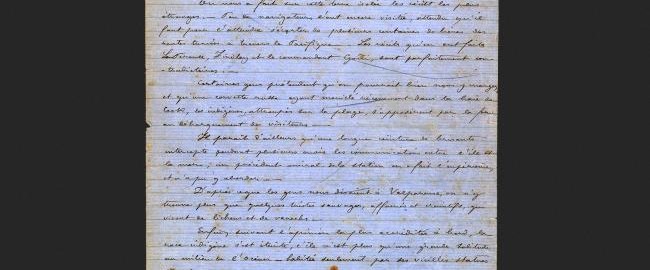 On nous a fait sur cette terre isolée les récits les plus
étranges. — Peu de navigateurs l'ont encore visitée, attendu qu'il
faut pour l'atteindre s'écarter de plusieurs centaines de lieues des
routes tracées à travers le Pacifique. — Les récits qu'en ont faits
et le commandant sont parfaitement con-
tradictoires. —
Certaines gens prétendent qu'on pourrait bien nous y manger,
et qu'une corvette russe ayant mouillé récemment dans la baie de
Cook, les indigènes, attroupés sur la plage, s'opposèrent par la force
au débarquement des visiteurs. —
Il paraît d'ailleurs qu'une longue ceinture de brisants
intercepte pendant plusieurs mois les communications entre l'île et
la mer; un précédent amiral de la station en a fait l'expérience,
et n'a pu y aborder. —
D'après ce que les gens nous disaient à Valparaiso, on n'y
trouve plus que quelques tristes sauvages, affamés et craintifs, qui
vivent de lichens et de varechs. —
Enfin, suivant l'opinion la plus accréditée à bord, la
race indigène s'est éteinte, l'île n'est plus qu'une grande solitude
au milieu de l'Océan — habitée seulement par ses vieilles statues